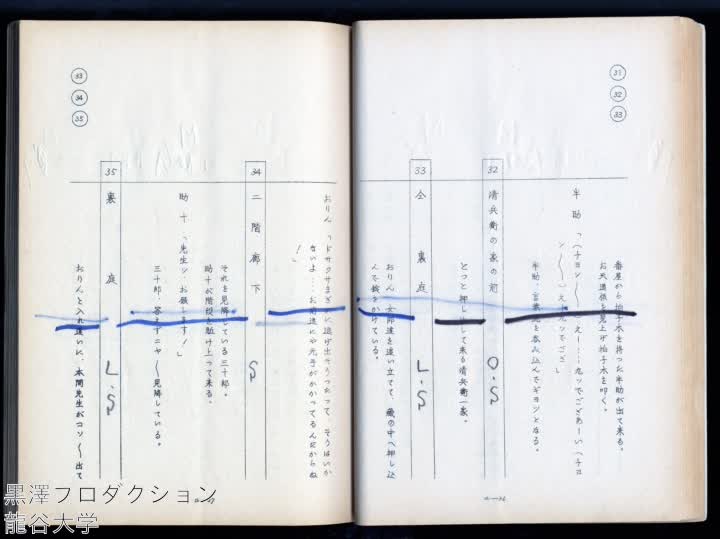 31
32
33
番屋から拍子木を持った半助が出て来る。
お天道様を見上げ拍子木を叩く。
半助「(チヨン〳〵)えー……九ッでござあーい(チヨ
ン〳〵)え丶九ッでござい」
半助、言葉を呑み込んでギヨッとなる。
32 清兵衛の家の前 O.S
どっと押し出して来る清兵衛一家。
33 仝 裏庭 L.S
おりん、女郎達を追い立てて、蔵の中へ押し込
んで錠をかけている。
おりん「ドサクサまぎれに逃げ出そうったって、そうはいか
ないよ……お前達にや元手がかかってるんだからね
!」
34 二階廊下 S
それを見降している三十郎。
助十が階段を駈け上って来る。
助十「先生ッ、お願します!」
三十郎、答えずニヤ〳〵見降している。
35 裏庭 L.S
おりんと入れ違いに、本間先生がコソ〳〵出て
33
34
35
黒澤プロダクション
龍谷大学